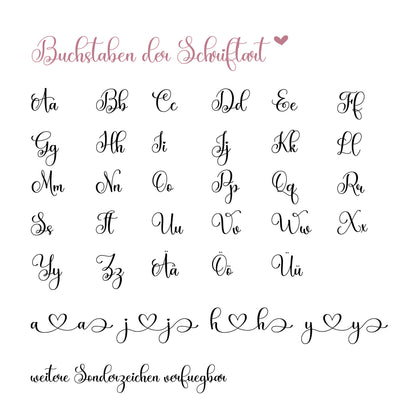 Buchstaben der Schriftart ♥
Aa Bb Cc Dd Ee Ff
Gg Hh Ii Jj Kk Ll
Mm Nn Oo Pp Qq Rr
Ss Tt Uu Vv Ww Xx
Yy Zz Ää Öö Üü
a♡a j♡j h♡h y♡y
weitere Sonderzeichen verfuegbar